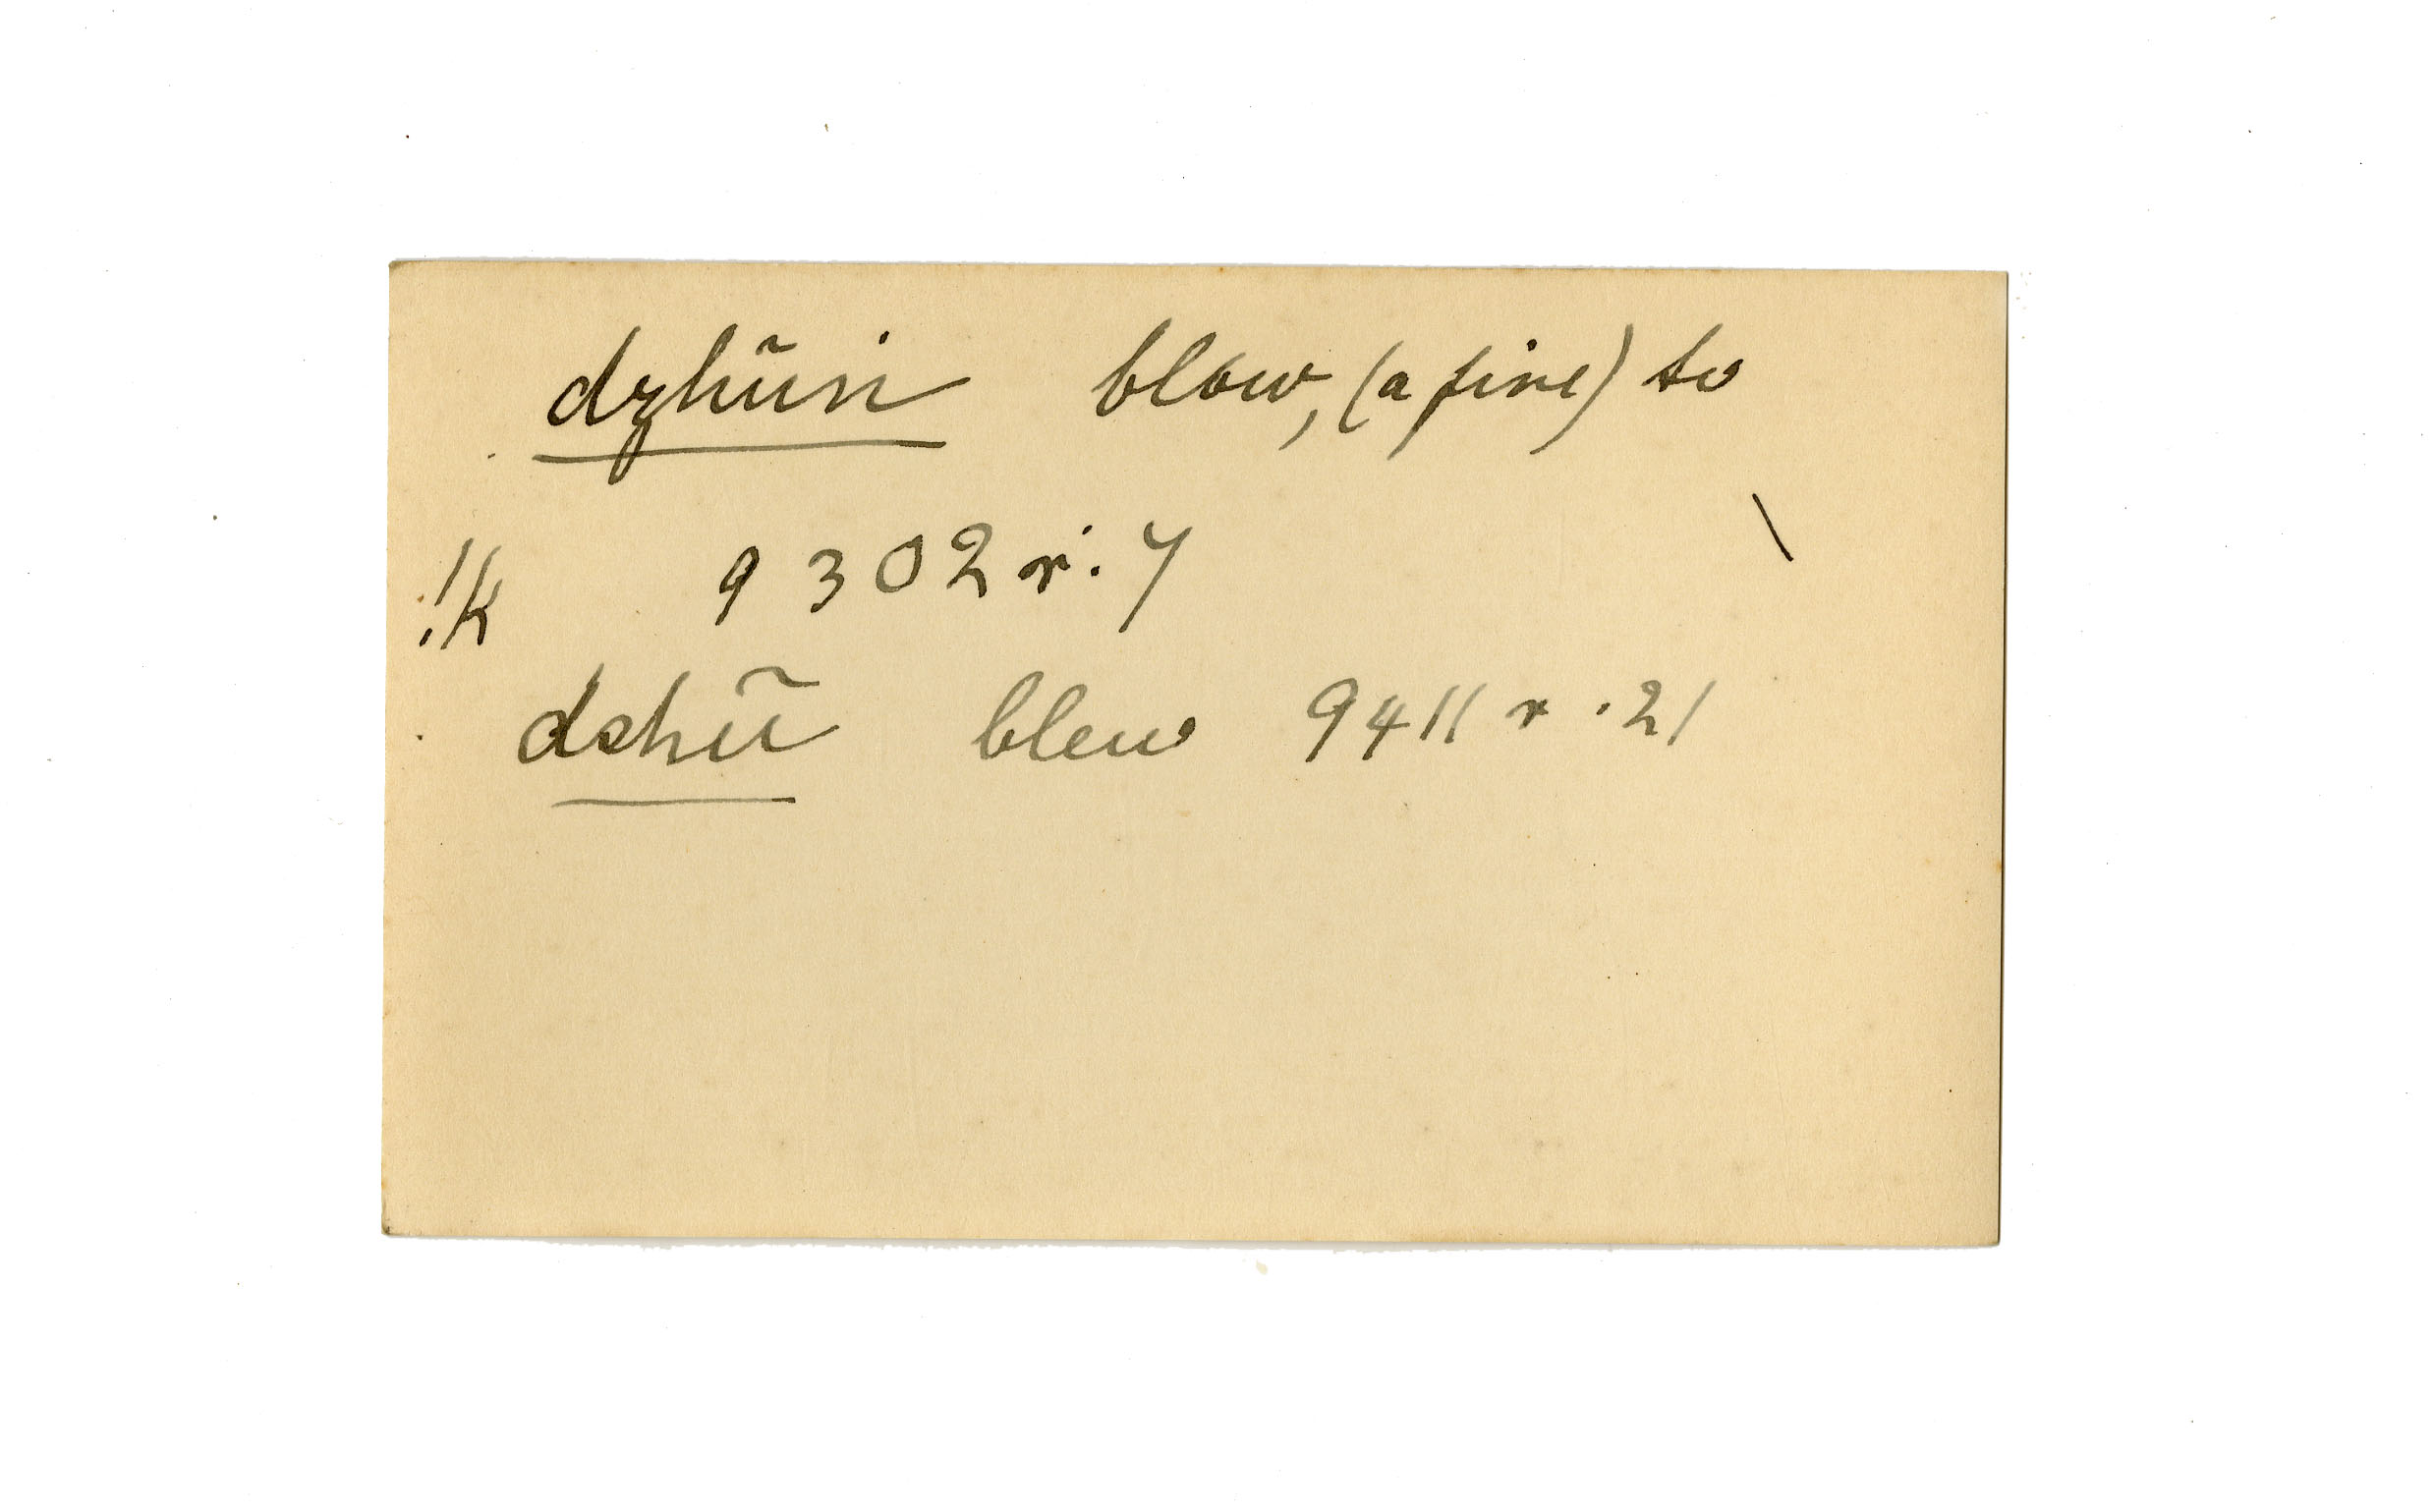 dzhūi blow, (a fire) to
!k 9302 r.7
dshū blew 9411 r.21